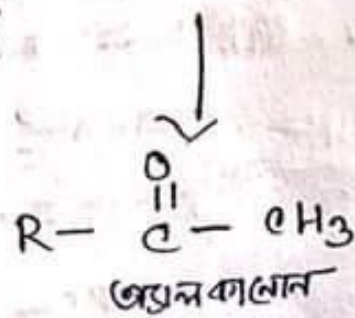 O
||
R — C — CH3
অ্যালকানোন